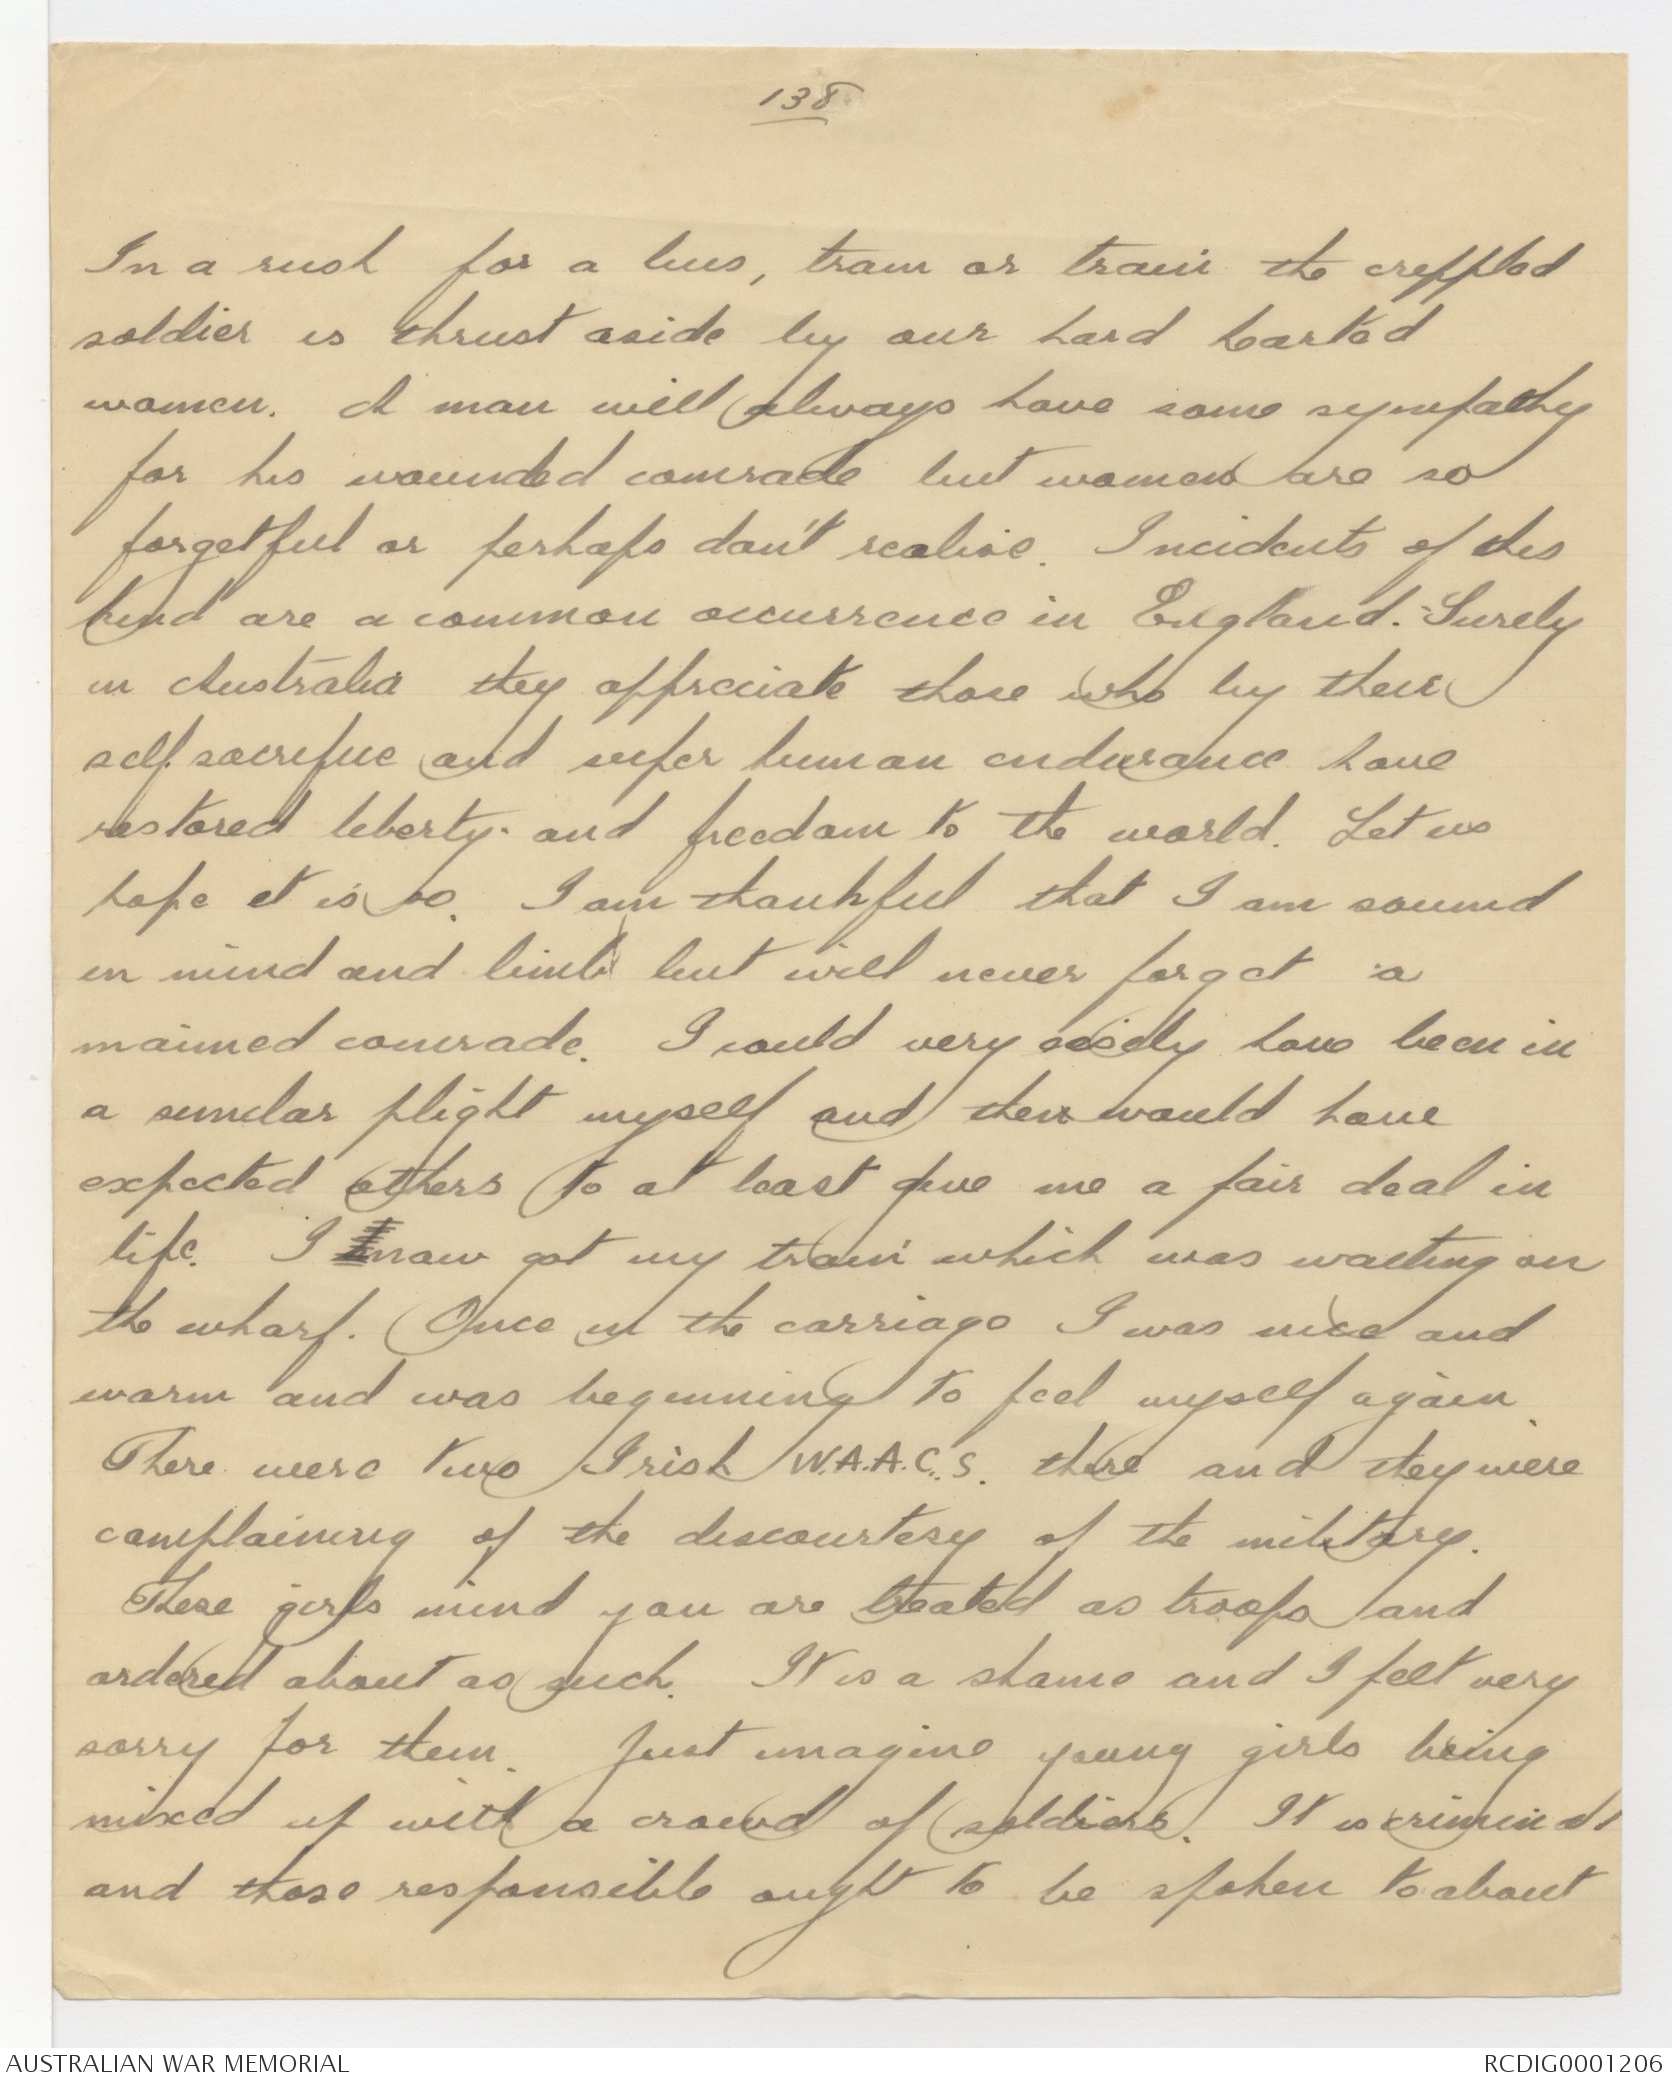 138
In a rush for a bus, tram or train the crippled
soldier is thrust aside by our hard hearted
women. A man will always have some sympathy
for his wounded comrade but women are so
forgetful or perhaps don't realise. Incidents of this
kind are a common occurrence in England. Surely
in Australia they appreciate those who by their
self sacrifice and super human endurance have
restored liberty and freedom to the world. Let us
hope it is so. I am thankful that I am sound
in mind and limb but will never forget a
maimed comrade. I could very easily have been in
a similar plight myself and then would have
expected others to at least give me a fair deal in
life. I now got my train which was waiting on
the wharf. Once in the carriage I was nice and
warm and was beginning to feel myself again.
There were two Irish W.A.A.C.S. there and they were
complaining of the discourtesy of the military.
These girls mind you are treated as troops and
ordered about as such. It is a shame and I felt very
sorry for them. Just imagine young girls being
mixed up with a crowd of soldiers. It is criminal
and those responsible ought to be spoken to about
AUSTRALIAN WAR MEMORIAL
RCDIG0001206